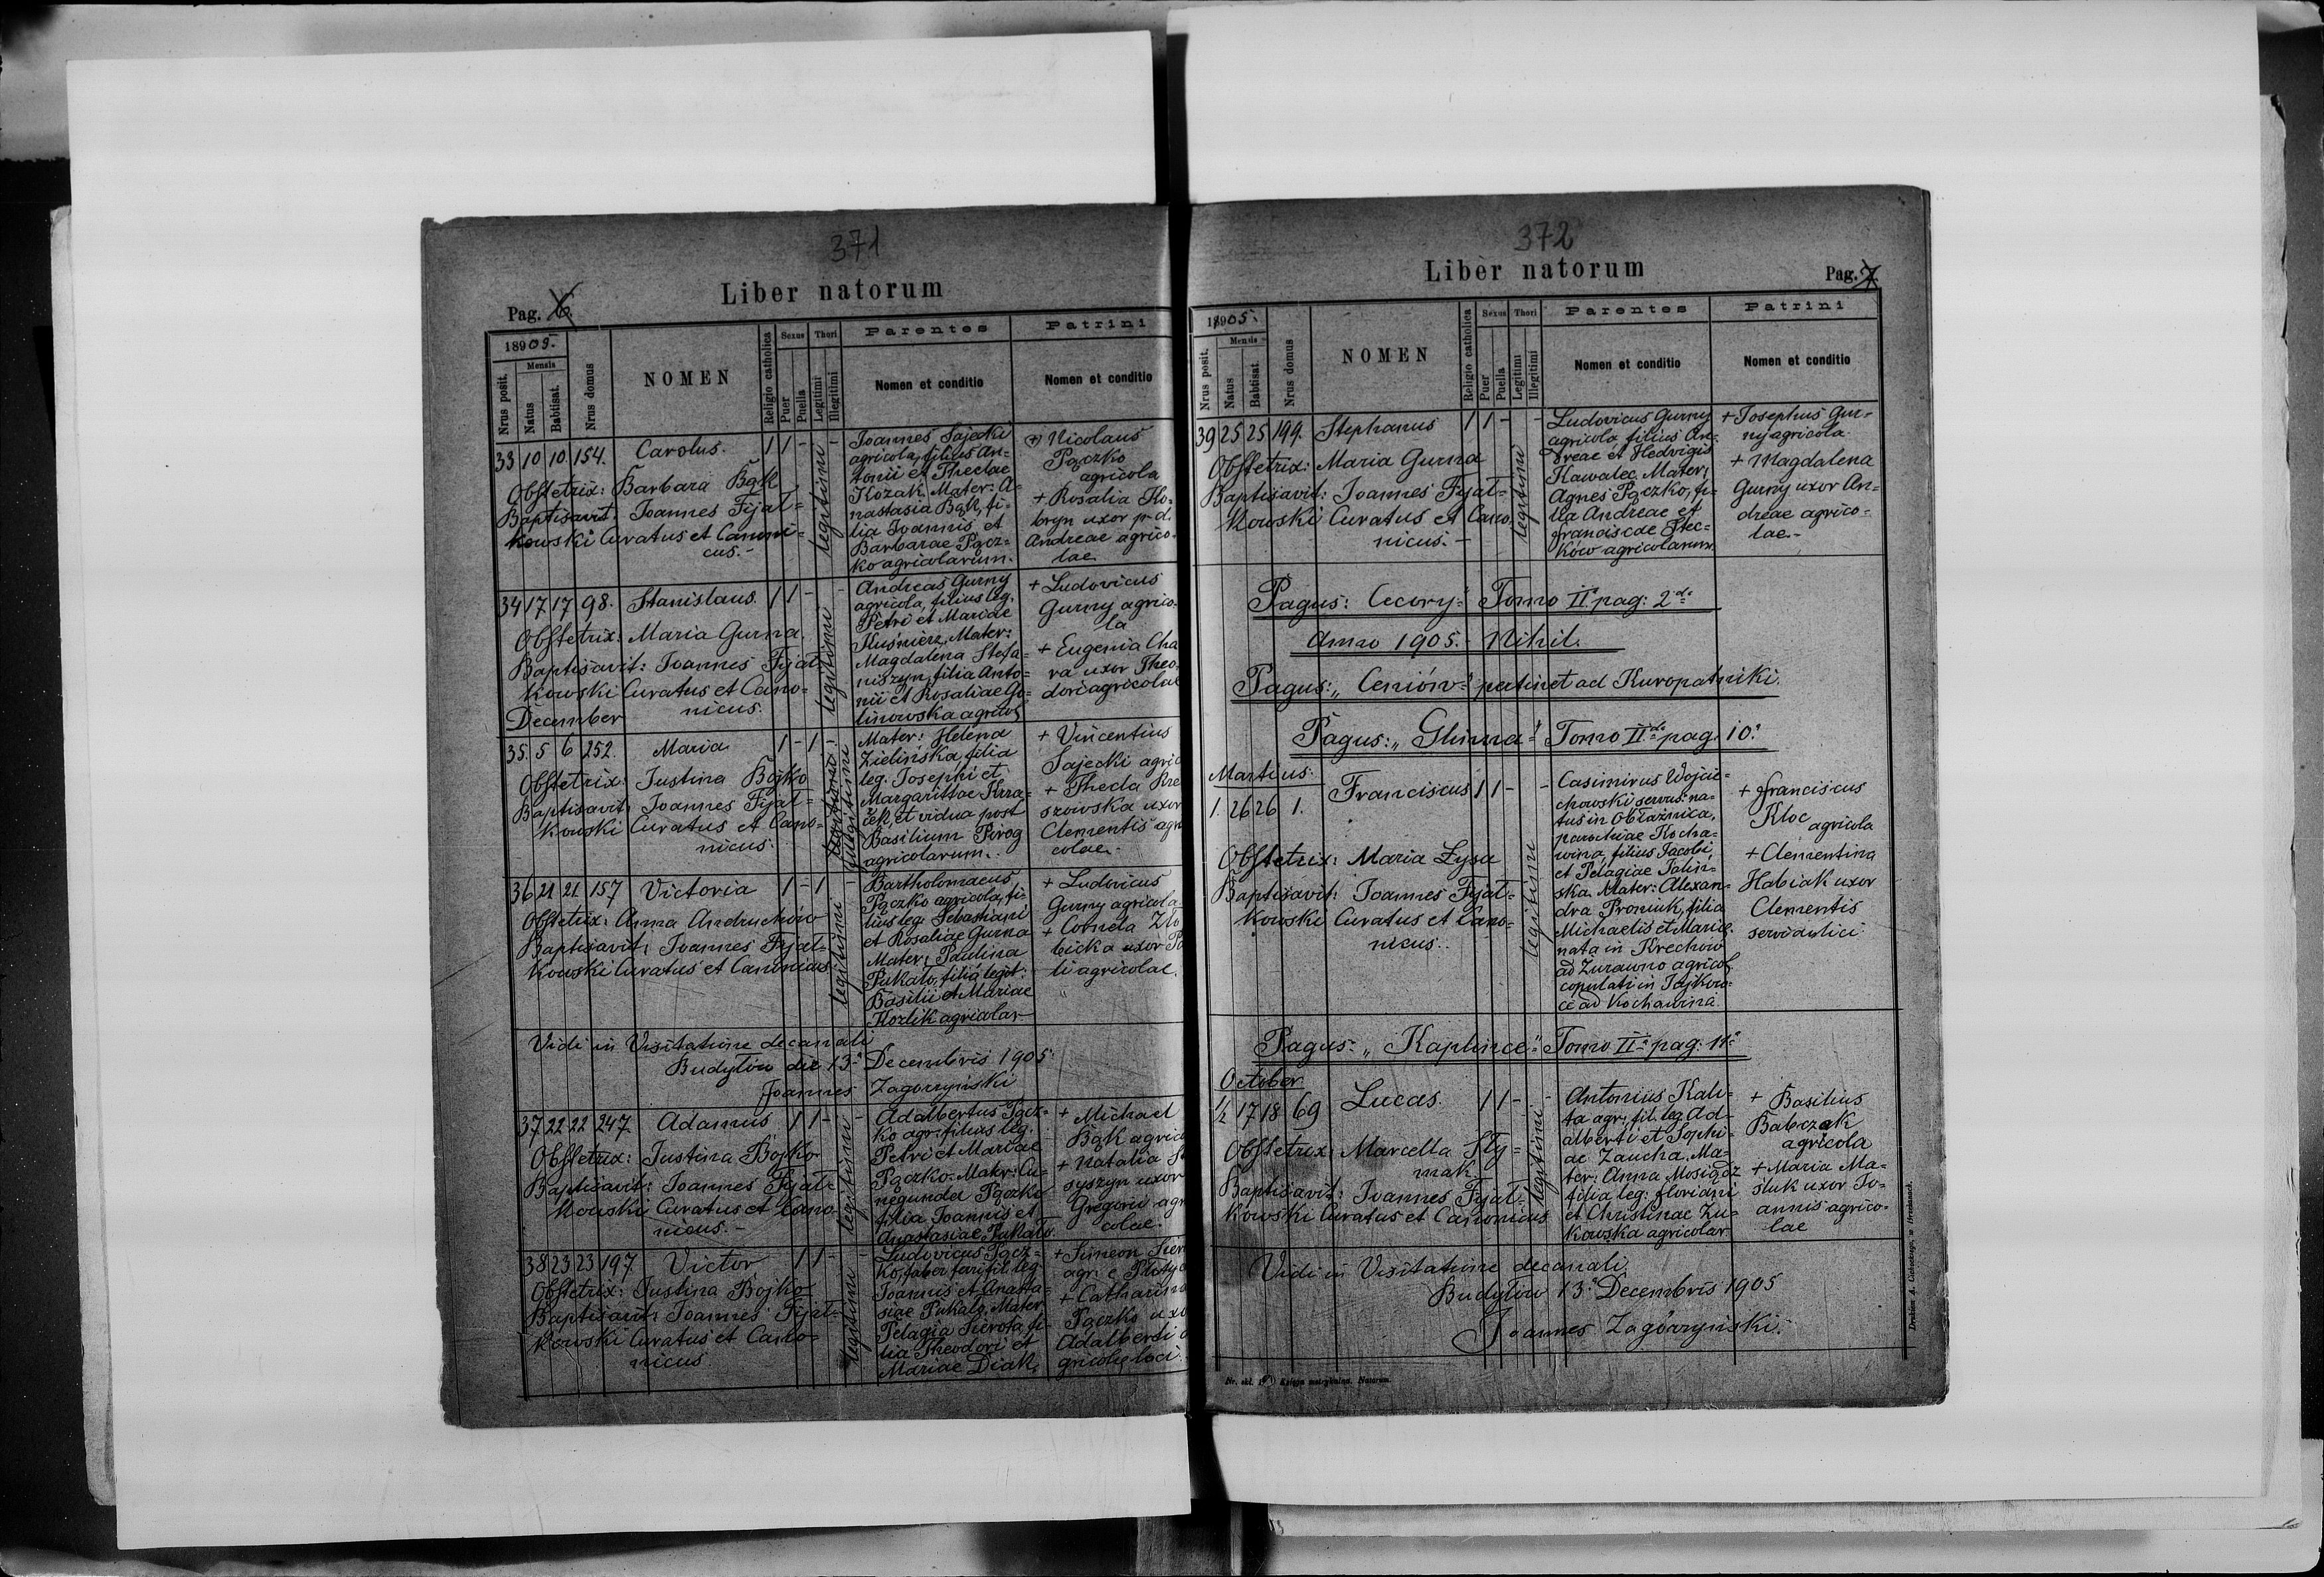 371
Liber natorum
Pag. 6.
1890 5.
Mensis
Nrus posit.
Natus
Babtisat.
Nrus domus
NOMEN
Religio catholica
Sexus
Puer
Puella
Thori
Legitimi
Illegitimi
Parentes
Nomen et conditio
Patrini
Nomen et conditio
33 10 10 154. Carolus. 1 1 - -
Obstetrix: Barbara Bąk
Baptisavit: Joannes Fijał=
kowski Curatus et Canoni=
cus.-
legitimi
Joannes Sajecki
agricola, filius An=
tonii et Theclae
Kozak. Mater: A=
nastasia Bąk, fi=
lia Joannis et
Barbarae Pącz=
ko agricolarum.
+ Nicolaus
Pączko
agricola
+ Rosalia Ko=
bryn uxor p. d.
Andreae agrico=
lae
34 17 17 98. Stanislaus. 1 1 - -
Obstetrix: Maria Gurna.
Baptisavit: Joannes Fijał=
kowski Curatus et Cano=
nicus.
legitimi
Andreas Gurny
agricola, filius leg.
Petri et Mariae
Kuśnierz, Mater:
Magdalena Stefa=
niszyn, filia Anto=
nii et Rosaliae Go=
linowska agricol.
+ Ludovicus
Gurny agrico=
la
+ Eugenia Cha
ra uxor Theo
dori agricolae
December
35. 5 6 252. Maria 1 - 1 -
Obstetrix: Justina Bojko
Baptisavit: Joannes Fijał=
kowski Curatus et Cano=
nicus.
legitimi
illegitimi
Mater: Helena
Zielińska, filia
leg. Josephi et
Margarittae
et vidua post
Basilium Pirog
agricolarum.
+ Vincentius
Sajecki agric
+ Thecla Kre
szowska uxor
Clementis agri
colae.
36 21 21 157 Victoria 1 - 1 -
Obstetrix: Anna Andruchów
Baptisavit: Joannes Fijał=
kowski Curatus et Canonicus.
legitimi
Bartholomaeus
Pączko agricola, fi=
lius leg. Sebastiani
et Rosaliae Gurna
Mater: Paulina
Pukało, filia legit.
Basilii et Mariae
Kozlik agricolar.
+ Ludovicus
Gurny agricola
+ Cornela Zło
bicka uxor Pa
li agricolae.
Vidi in Visitatione decanali
Budyłów die 13ª Decembris 1905.
Joannes Zagórzyński
37 22 22 247 Adamus 1 1 - -
Obstetrix: Justina Bojko
Baptisavit: Joannes Fijał=
kowski Curatus et Cano=
nicus.-
legitimi
Adalbertus Pącz=
ko agr. filius leg.
Petri et Mariae
Pączko. Mater: Cu=
negunda Pączko
filia Joannis et
Anastasiae Pukało.
+ Michael
Bąk agrico
+ Natalia
syszyn uxor
Gregorii agri
colae.
38 23 23 197 Victor 1 1 - -
Obstetrix: Justina Bojko
Baptisavit: Joannes Fijał=
kowski Curatus et Cano=
nicus
legitimi
Ludovicus Pącz=
ko, faber fari fil. leg.
Joannis et Anasta=
siae Pukało, Mater
Pelagia Sierota, fi=
lia Theodori et
Mariae Diak.
+ Simeon Sier
agr. e Płotyc
+ Catharina
Pączko uxo
Adalberti a
gricolae loci.
372
Liber natorum
Pag. 7.
1890 5.
Mensis
Nrus posit.
Natus
Babtisat.
Nrus domus
NOMEN
Religio catholica
Sexus
Puer
Puella
Thori
Legitimi
Illegitimi
Parentes
Nomen et conditio
Patrini
Nomen et conditio
39 25 25 199. Stephanus 1 1 - -
Obstetrix: Maria Gurna
Baptisavit: Joannes Fijał=
kowski Curatus et Cano=
nicus.-
legitimi
Ludovicus Gurny
agricola, filius An=
dreae et Hedvigis
Kawalec. Mater:
Agnes Pączko, fi=
lia Andreae et
Franciscae Stec=
ków agricolarum
+ Josephus Gur=
ny agricola.
+ Magdalena
Gurny uxor An=
dreae agrico=
lae.-
Pagus: Cecory" Tomo II pag: 2da
Anno 1905.- Nihil.
Pagus: „Ceniów" pertinet ad Kuropatniki.
Pagus: „Glinna" Tomo IIdo pag. 10ª
Martius.
1. 26 26 1. Franciscus 1 1 - -
Obstetrix: Maria Łysa
Baptisavit: Joannes Fijał=
kowski Curatus et Cano=
nicus.
legitimi
Casimirus Wojcie=
chowski servus, na=
tus in Obłaźnica,
parochiae Kocha=
wina, filius Jacobi,
et Pelagiae Falin=
ska. Mater: Alexan=
dra Proniuk, filia
Michaelis et Mariae,
nata in Krechów
ad Żurawno agricol.
copulati in Jajkow=
ce ad Kochawina.
+ Franciscus
Kloc agricola
+ Clementina
Habiak uxor
Clementis
servi aulici
Pagus: „Kaplince" Tomo IIª pag: 11ª
October
1/2 17 18 69 Lucas. 1 1 - -
Obstetrix: Marcella Sły=
mak
Baptisavit: Joannes Fijał=
kowski Curatus et Canonicus
legitimi
Antonius Kali=
ta agr. fil. leg. Ad=
alberti et Sophi=
ae Zaucha, Ma=
ter: Anna Mosiądz
filia leg: Floriani
et Christinae Żu=
kowska agricolar.
+ Basilius
Babczak
agricola
+ Maria Ma=
śluk uxor Jo=
annis agrico=
lae
Vidi in Visitatione decanali
Budyłów 13ª Decembris 1905
Joannes Zagórzyński.
Księga metrykalna. Natorum.